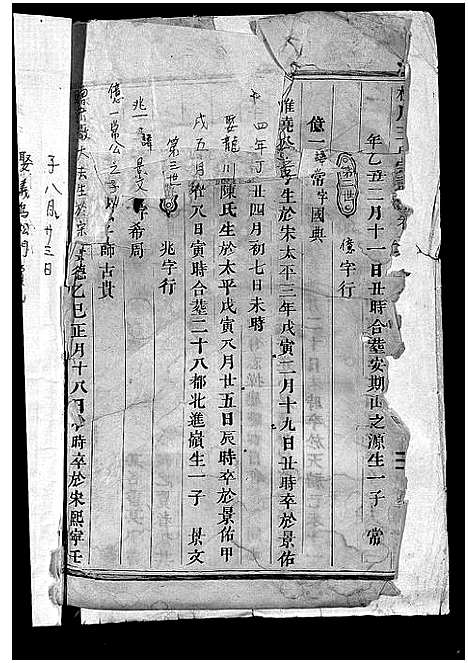 年乙丑二月十一日丑時合塟安期山之源生一子 常
第二世 億字行
億一 諱常字國典
公生於宋太平三年戊寅二月十九日丑時卒於景佑
四年丁丑四月初七日未時
娶龍川陳氏生於太平戊寅八月廿五日辰時卒於景佑甲
戌五月初八日寅時合塟二十八都北進嶺生一子 景文
第三世 兆字行
兆一 諱景文字希周
億一常公之子 師古貴
生於宋景德乙巳正月十八日 時卒於宋熙寧壬
子八月廿三日
娶